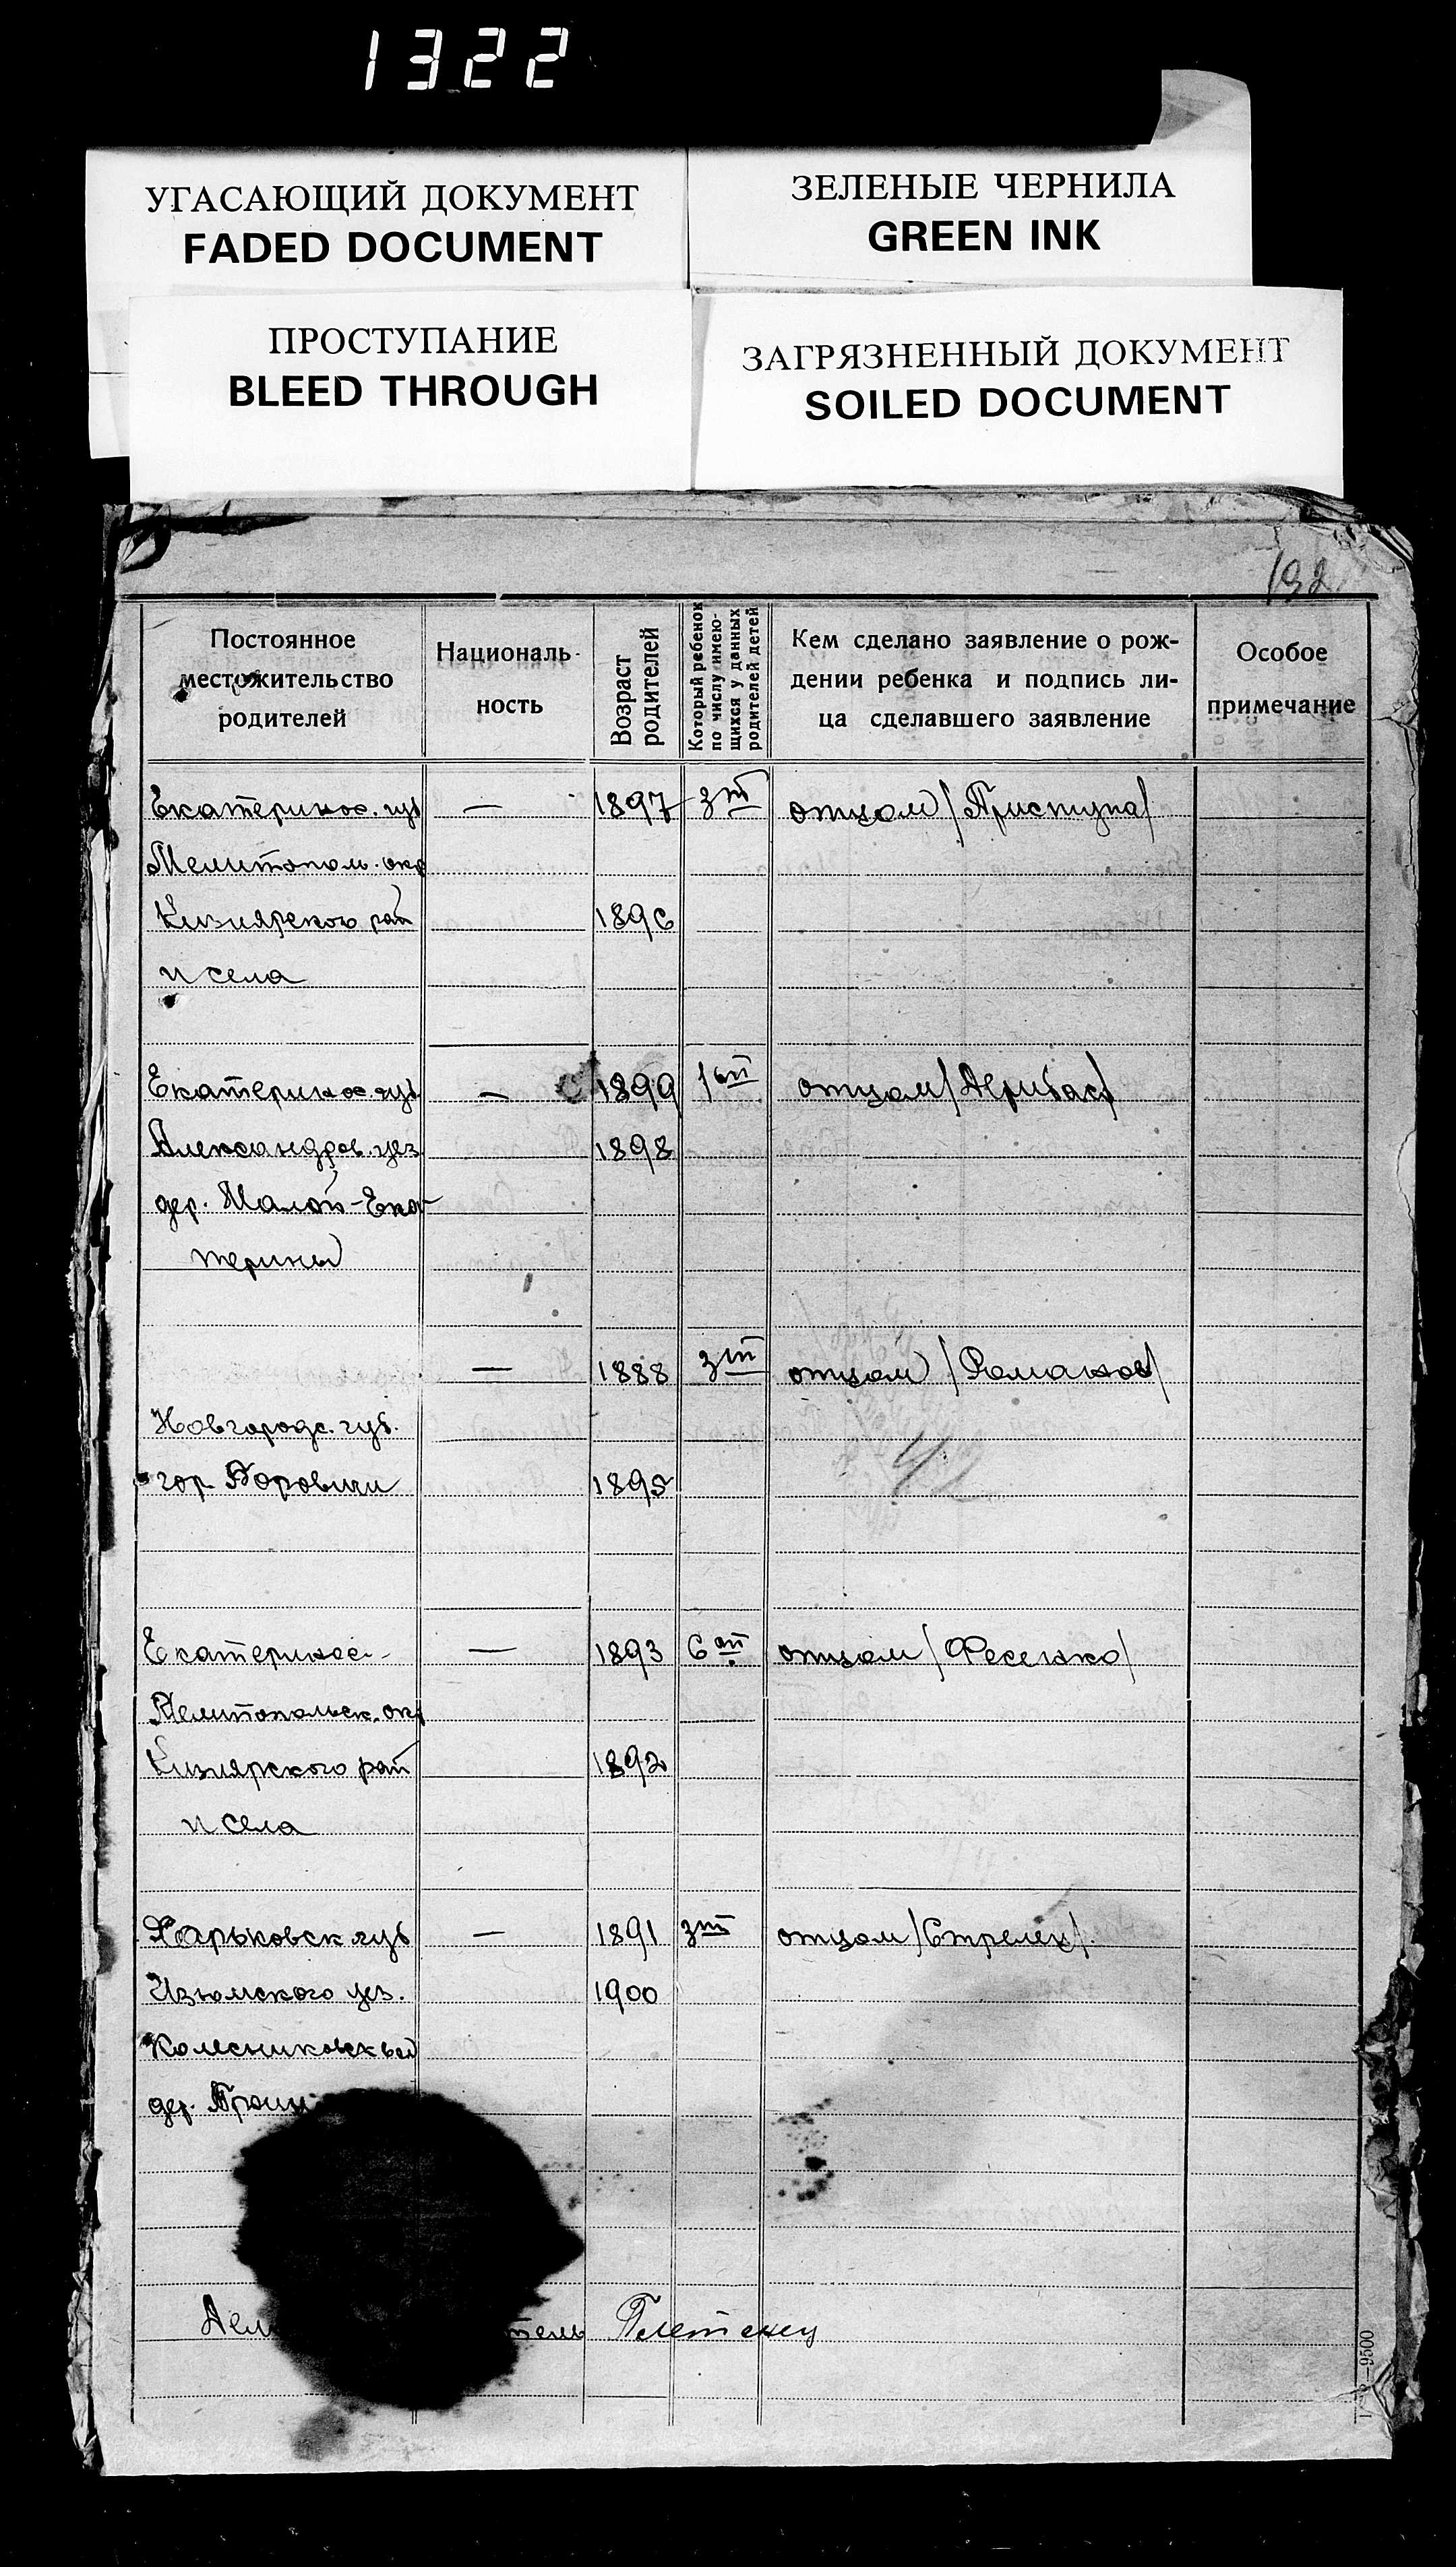 1322
УГАСАЮЩИЙ ДОКУМЕНТ
FADED DOCUMENT
ЗЕЛЕНЫЕ ЧЕРНИЛА
GREEN INK
ПРОСТУПАНИЕ
BLEED THROUGH
ЗАГРЯЗНЕННЫЙ ДОКУМЕНТ
SOILED DOCUMENT
192
Постоянное
местожительство
родителей
Националь-
ность
Возраст
родителей
Который ребенок
по числу имею-
щихся у данных
родителей детей
Кем сделано заявление о рож-
дении ребенка и подпись ли-
ца сделавшего заявление
Особое
примечание
Екатеринос. губ — 1897 3й отцом /Приступа/
Мелитополь. окр
Кизиярского рай 1896
и села
Екатеринос губ — 1899 1ый отцом /Дерибас/
Александров. уез 1898
дер. Малой-Ека-
терины
— 1888 3й отцом /Романов/
Новгородс. губ.
гор Боровичи 1895
Екатеринос. — 1893 6ой отцом /Фесенко/
Мелитопольск. окр
Кизиярского рай 1892
и села
Харьковск губ — 1891 3й отцом /Стрелец/
Изюмского уез. 1900
Колесниковск вол
дер.
Плетенец
9500